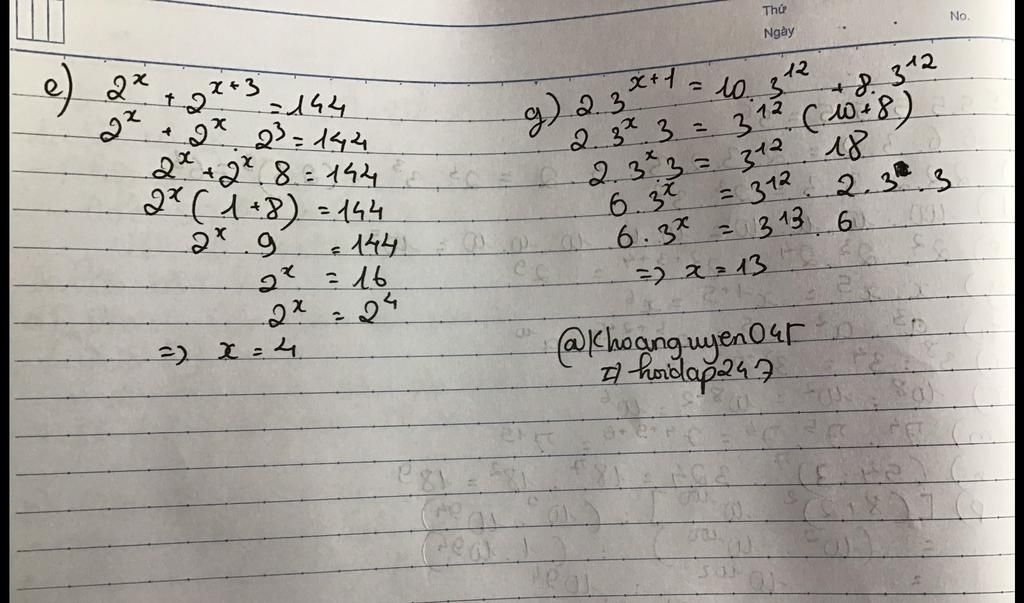 Thứ
Ngày
No.
e) 2^x + 2^{x+3} = 144
2^x + 2^x . 2^3 = 144
2^x + 2^x 8 = 144
2^x ( 1 + 8 ) = 144
2^x . 9 = 144
2^x = 16
2^x = 2^4
=> x = 4
g) 2.3^{x+1} = 10.3^{12} + 8.3^{12}
2.3^x . 3 = 3^{12} . ( 10 + 8 )
2.3^x.3 = 3^{12} . 18
6.3^x = 3^{12} . 2.3 . 3
6.3^x = 3^{13} . 6
=> x = 13
@Khoanguyen045
# hoidap247